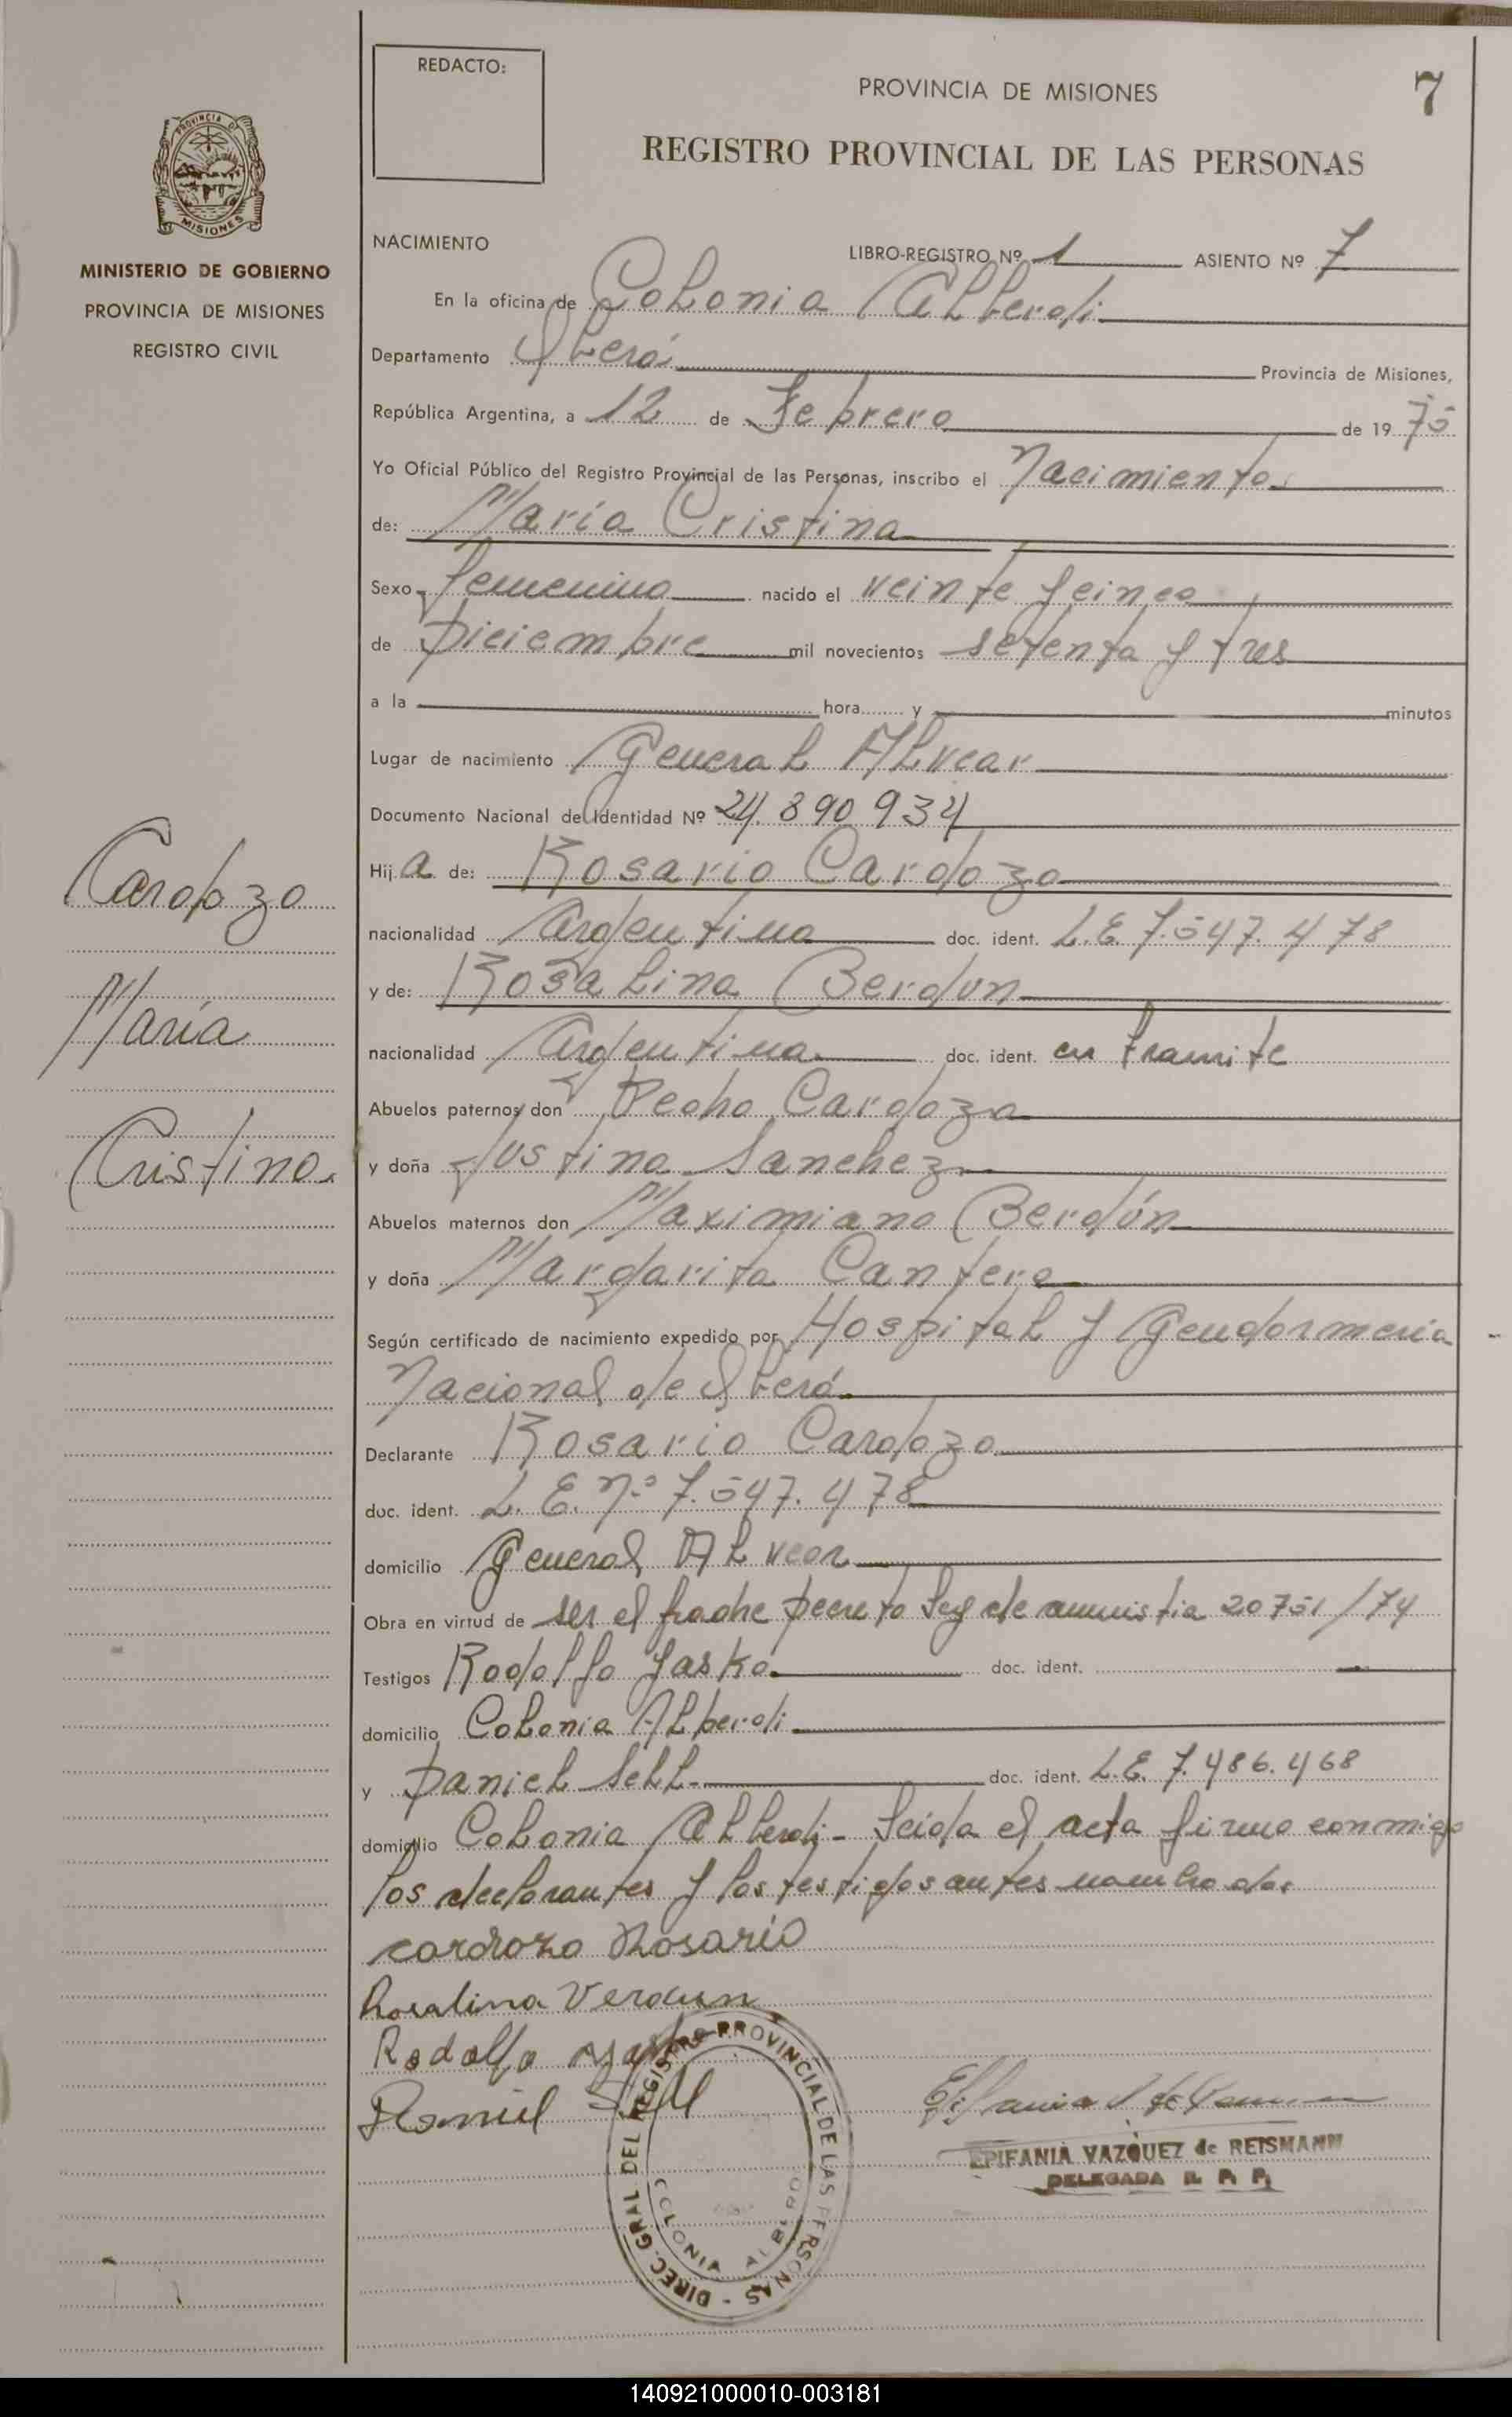 REDACTO:
PROVINCIA DE MISIONES
7
REGISTRO PROVINCIAL DE LAS PERSONAS
PROVINCIA DE
MISIONES
MINISTERIO DE GOBIERNO
PROVINCIA DE MISIONES
REGISTRO CIVIL
NACIMIENTO
LIBRO-REGISTRO Nº 1 ASIENTO Nº 7
En la oficina de Colonia Alberdi
Departamento Oberá Provincia de Misiones,
República Argentina, a 12 de Febrero de 1975
Yo Oficial Público del Registro Provincial de las Personas, inscribo el Nacimiento
de: María Cristina
Sexo femenino nacido el veinte y cinco
de Diciembre mil novecientos setenta y tres
a la hora y minutos
Lugar de nacimiento General ALvear
Documento Nacional de Identidad Nº 24.890934
Hija de: Rosario Cardozo
nacionalidad Argentina doc. ident. L.E. 7.547.478
y de: Rosalina Berdun
nacionalidad Argentina doc. ident. en tramite
Abuelos paternos don Pedro Cardozo
y doña Justina Sanchez
Abuelos maternos don Maximiano Berdún
y doña Margarita Cantero
Según certificado de nacimiento expedido por Hospital y Gendarmeria
Nacional de Oberá
Declarante Rosario Cardozo
doc. ident. L.E. Nº 7.547.478
domicilio General ALvear
Obra en virtud de ser el padre Decreto Ley de amnistia 20751/74
Testigos Rodolfo Jasko doc. ident.
domicilio Colonia ALberdi
y Daniel SeLL doc. ident. L.E. 7.486.468
domicilio Colonia Alberdi - Leida el acta firma conmigo
los declarantes y los testigos antes nombrados
cardozo Rosario
Rosalina Verdun
Rodolfo
Daniel Sell
Cardozo
María
Cristina
DIREC. GRAL DEL REGISTRO PROVINCIAL DE LAS PERSONAS -
COLONIA ALBERDI
EPIFANIA VAZQUEZ de REISMANN
DELEGADA R. P. P.
140921000010-003181